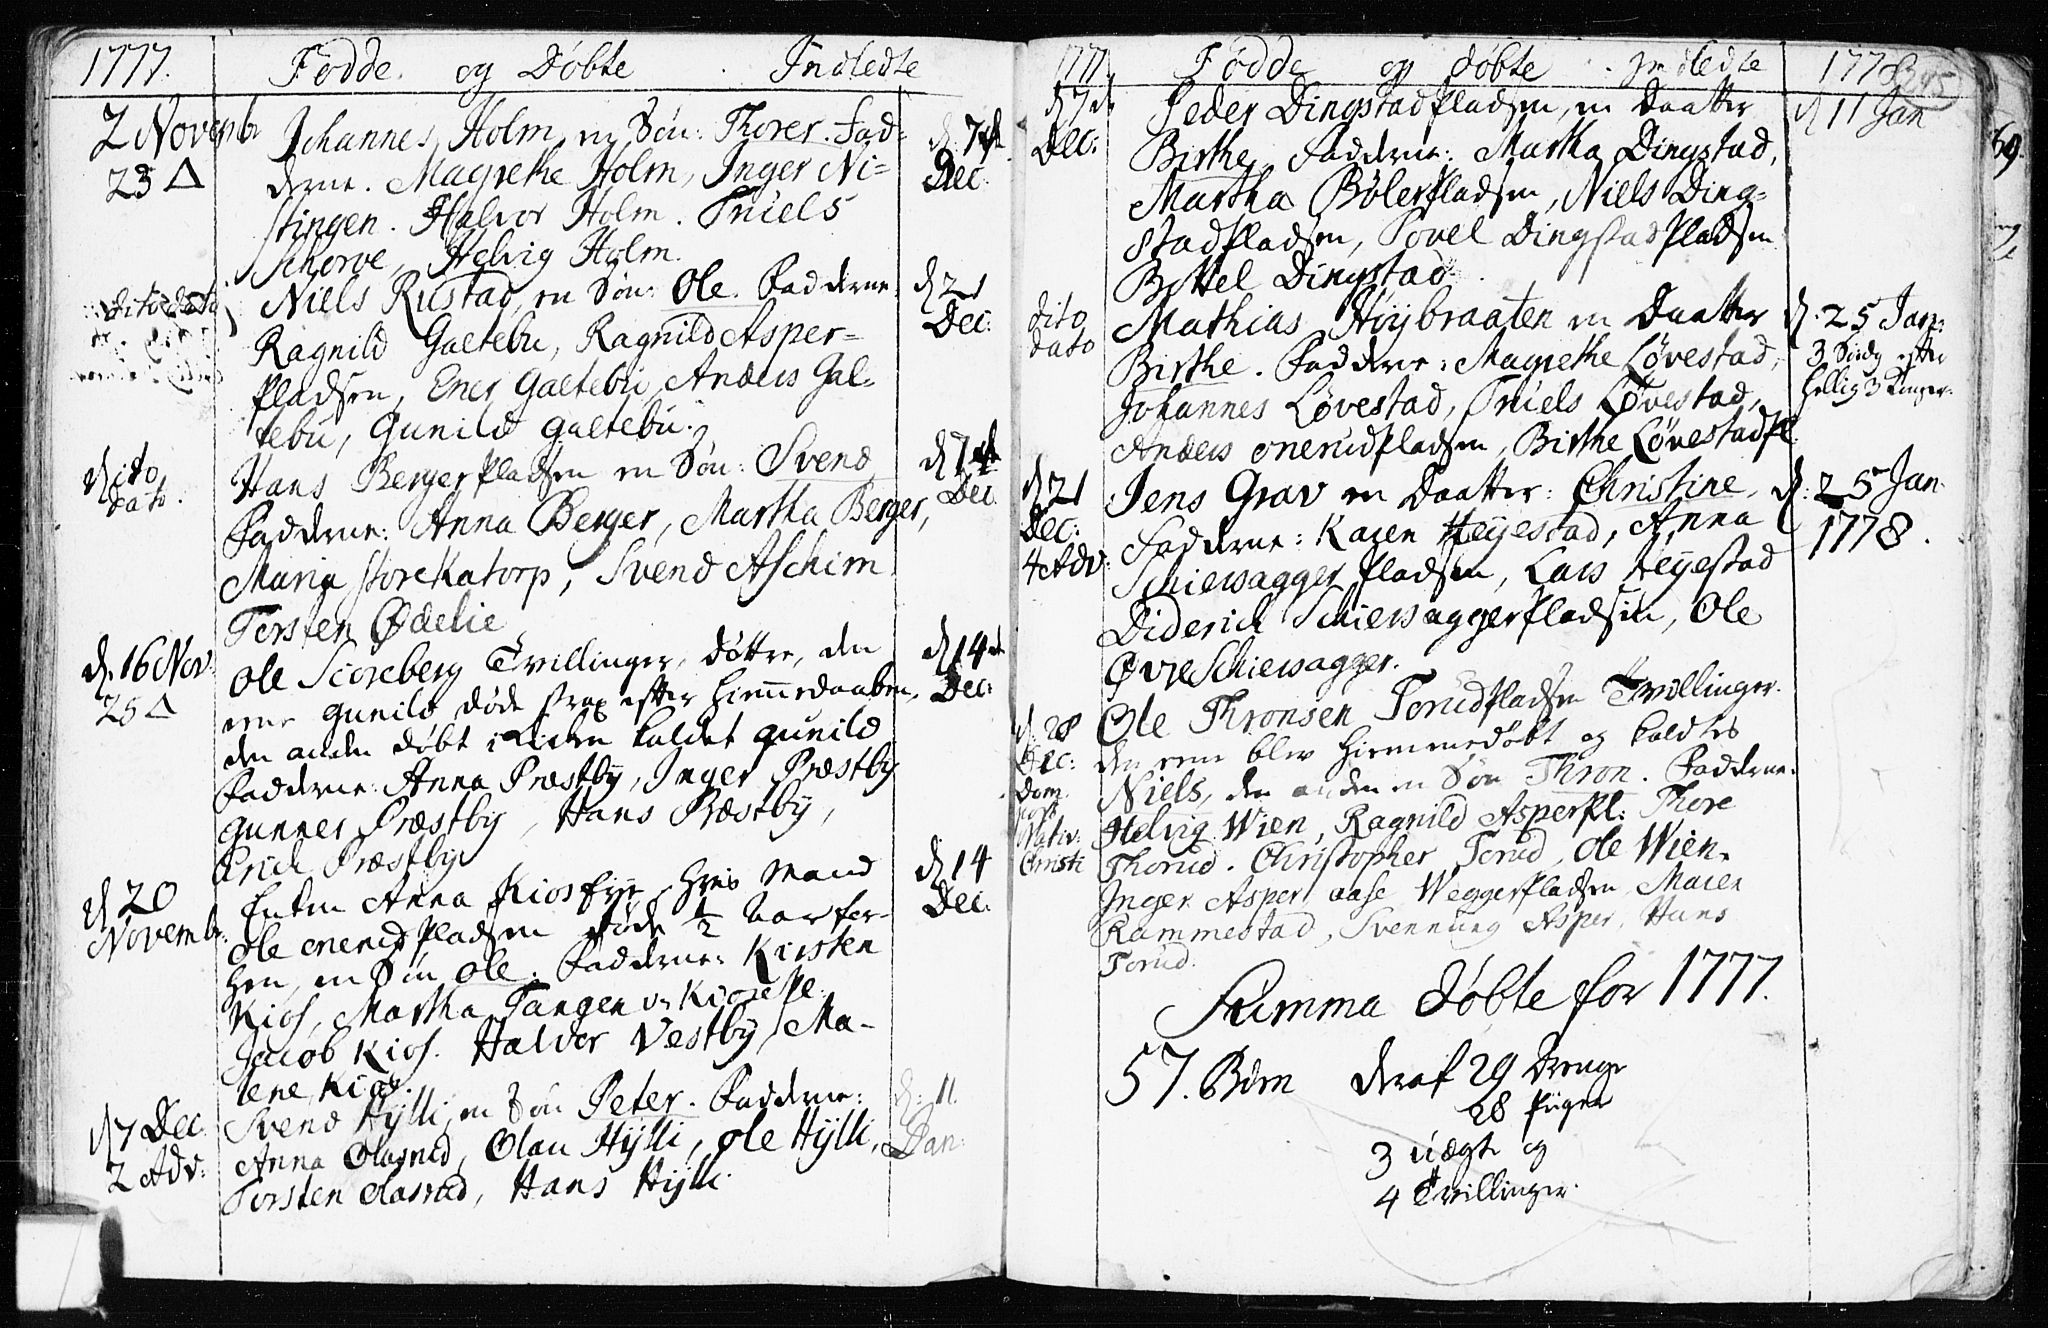 1777. Fødde og Døbte . Indledte
2 Novembr Johannes Holm en Søn: Thorer. Fad= d. 7de
23 Δ derne. Magrethe Holm, Inger Ni= Dec:
stingen. Halvor Holm. Truels
Schorve, Helvig Holm.
dito dato Niels Rustad, en Søn: Ole. Fadderne: d. 21
Ragnild Gaetebu, Ragnild Asper= Dec:
Pladsen, Ener Gaetebu, Anders Gal=
tebu, Gunild Gaetebu.
dito Hans BergerPladsen en Søn: Svend d. 7de
dato. Fadderne: Anna Berger, Martha Berger, Dec
Maria StoreKatorp, Svend Aschim
Torsten Ødelie
d. 16 Nov: Ole Scoreberg Tvillinger, døttre, den d. 14de
25 Δ eene Gunild døde strax efter Hiemmedaaben, Dec:
den anden døbt i Kirken kaldet Gunild
Fadderne: Anna Præstby, Inger Præstby
Gunner Præstby, Hans Præstby,
Erich Præstby
d. 20 Enken Anna Kios, hvis Mand d. 14
Novembr: Ole OnerudPladsen døde 1/2 Aar for= Dec:
hen, en Søn Ole. Fadderne: Kirsten
Kios, Martha Tangen
Jacob Kios. Halvor Vestby, Ma-
lene Kios.
d. 7 Dec. Svend Hylli en Søn Peter. Fadderne: d: 11.
2 Adv: Anna Olasrud, Olau Hylli, Ole Hylli, Jan:
Torsten Olasrud, Hans Hylli
1777 Fødde og døbte . Indledte 1778 395
d. 7de Peder DingstadPladsen, en Daatter d. 11 Jan
Dec: Birthe. Fadderne: Martha Dingstad,
Martha BølerPladsen, Niels Ding=
stadPladsen, Povel DingstadPladsen
Bottel Dingstad.
dito Mathias Høybraaten en Daatter d. 25 Jan:
dato Birthe. Fadderne: Magrethe Løvestad, 3 Sndg efter
Johannes Løvestad, Truels Løvestad, Hellig 3 Konger.
Anders OnerudPladsen, Birthe LøvestadPl.
d. 21 Jens Grav en Daatter: Christine. d: 25 Jan
Dec: Fadderne: Karen Heyestad, Anna 1778.
4 Adv: Schiersagger Pladsen, Lars Heyestad
Diderich SchiersaggerPladsen, Ole
Øvre Schiersagger.
d. 28 Ole Thronsen TorudPladsen Tvillinger.
Dec: den eene blev hiemmedøbt og kaldtes
Dom. Niels, den anden en Søn Thron. Fadderne:
post Helvig Wien, Ragnild AsperPl: Thore
Nativ: Thorud. Christopher Torud, Ole Wien.
Christi Inger Asper Aase WeggerPladsen Maren
Rammestad, Svennung Asper, Hans
Torud.
Summa døbte for 1777.
57. Børn deraf 29 Drenge
28 Piger
3 uægte og
4 Tvillinger.